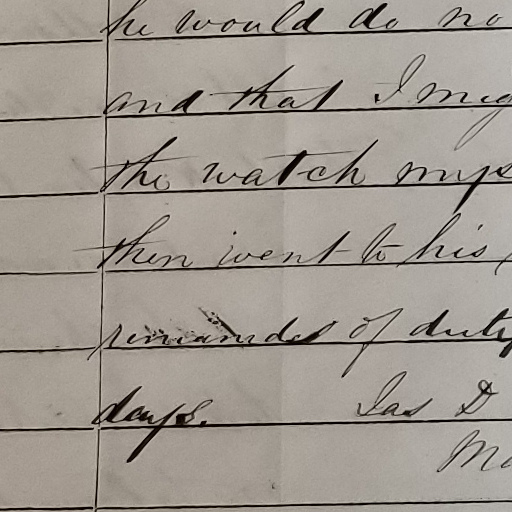 he would do no
and that I mig
the watch mys
then went to his
remainder of duty
days. Jas D
Ma